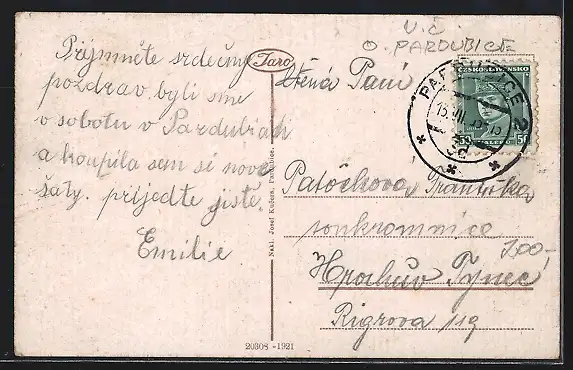 V.Č.
O. PARDUBICE
Taro
Přijmněte srdečný
pozdrav. byli sme
v sobotu v Pardubicích
a koupila sem si nové
šaty. přijeďte jistě.
Emilie
Ctěná Paní
ČESKOSLOVENSKO
PARDUBICE 2
50
Patočkova Františka
soukromnice
Hrochův Týnec
Rigrova 119
300,-
Nakl. Josef Kučera, Pardubice.
20308 - 1921